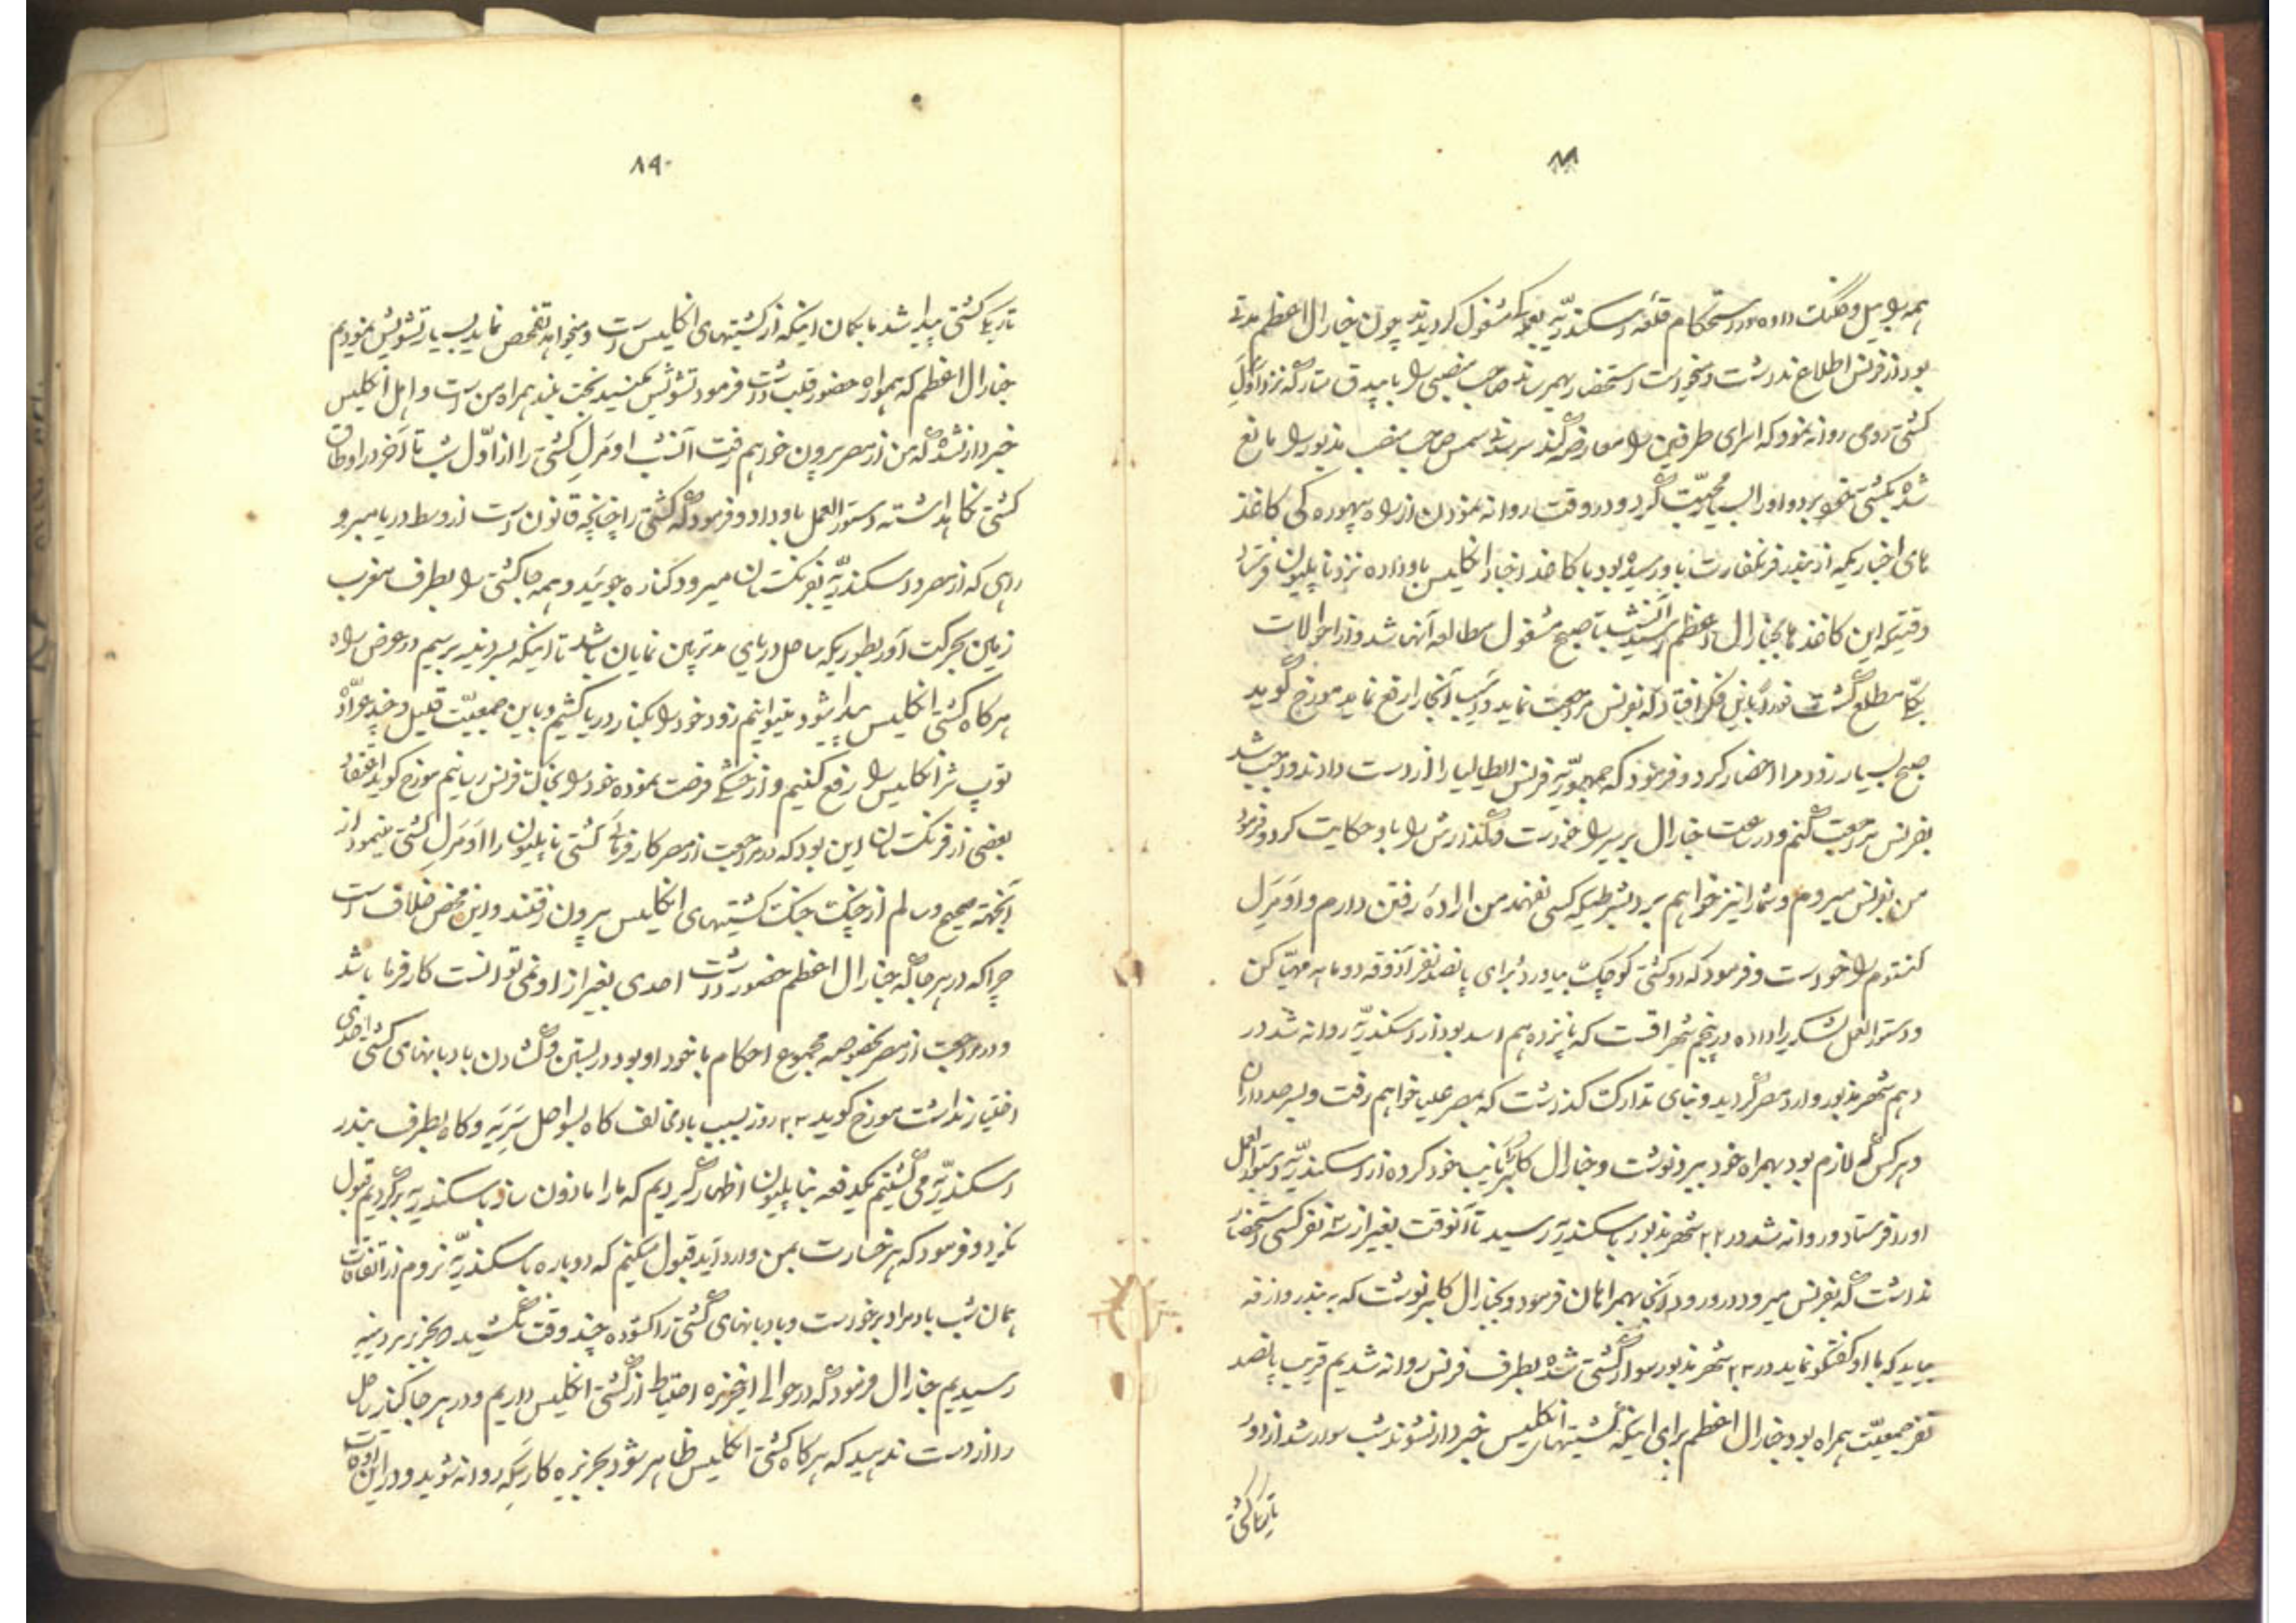 ۸۸
همه را بیل و کلنگ داده در استحکام قلعه اسکندریّه بعمله مشغول گردیدند چون جنارال اعظم مدتی
بود از فرنس اطلاع نداشت و میخواست استحضار بهم رساند صاحب منصبی را با بیدق متارکه نزد اوّل
کشتی رومی روانه نمود که اسرای طرفین را معاوضه کند سر سدنی سمس صاحب منصب مذبور را مانع
شده بکشتی خود برد و او را بسیار محبّت کرد و در وقت روانه نمودن از راه بیهوده گی کاغذ
های اخباریکه از بندر فرنکفارت باو رسیده بود با کاغذ اخبار انکلیس باو داده نزد ناپلیون فرستاد
وقتیکه این کاغذها بجنارال اعظم رسید آنشب تا صبح مشغول مطالعه آنها شد و از احوالات
یکّا مطلع گشت فوراً باین فکر افتاد که بفرنس مراجعت نماید و آسیب آنجا را رفع نماید مورخ گوید
صبح بسیار زود مرا احضار کرد و فرمود که جمهوریّه فرنس ایطالیا را از دست دادند واجب شد
بفرنس مراجعت کنم و در ساعت جنارال برییر را خواست و گذارش را باو حکایت کرد و فرمود
من بفرنس میروم و شما را نیز خواهم برد بشرطیکه کسی نفهمد من ارادهٔ رفتن دارم و اَوَمَرِل
کنتوم را خواست و فرمود که دو کشتی کوچک بیاورد برای پانصد نفر آذوقه دو ماهه مهیّا کن
و دستورالعمل لشکر را داده در پنجم شهر اقست که پانزدهم اسد بود از اسکندریّه روانه شد در
دهم شهر مذبور وارد مصر گردید و بنای تدارک گذاشت که بمصر علیا خواهم رفت و بسر صدداران
و هر کس که لازم بود بهمراه خود ببرد نوشت و جنارال کلبر را نایب خود کرده از اسکندریّه دستورالعمل
او را فرستاد و روانه شد در ۲۲ شهر مذبور باسکندریّه رسید تا آنوقت بغیر از سه نفر کسی استحضار
نداشت که بفرنس میرود در ورود آنجا بهمراهان فرمود و بجنارال کلبر نوشت که به بندر وازقه
بیاید که با او گفتگو نماید در ۲۳ شهر مذبور سوار کشتی شده بطرف فرنس روانه شدیم قریب پانصد
نفر جمعیّت همراه بود جنارال اعظم برای اینکه کشتیهای انکلیس خبردار نشوند شب سوار شد از دور
تاریک کشتی
۸۹
تاریک کشتی پیدا شد ما بکمان اینکه از کشتیهای انکلیس است و میخواهد تفحص نماید بسیار تشویش نمودیم
جنارال اعظم که همواره حضور قلب داشت فرمود تشویش مکنید بخت بلند همراه من است و اهل انکلیس
خبردار نشده که من از مصر بیرون خواهم رفت آنشب اومرل کشتی را از اوّل شب تا آخر در اوطاق
کشتی نگاهداشته دستورالعمل باو داد و فرمود که کشتی را چنانچه قانون است از وسط دریا میبرو
راهی که از مصر و اسکندریّه بفرنکستان میرود کناره جوئید و همه جا کشتی را بطرف مغرب
زمین بحرکت آور بطوریکه ساحل دریای مدترین نمایان باشد تا اینکه بسردنیه برسیم در عرض راه
هر کاه کشتی انکلیس پیدا شود میتوانیم زود خود را بکنار دریا کشیم و با این جمعیّت قلیل و چند عرّاده
توپ شرّ انکلیس را رفع کنیم و از خشکی فرصت نموده خود را بخاک فرنس رسانیم مورخ گوید اعتقاد
بعضی از فرنکستان این بود که در مراجعت از مصر کار فرمائی کشتی ناپلیون را اومرل کشتی مینمود از
آنجهة صحیح و سالم از چنک جنک کشتیهای انکلیس بیرون رفتند و این محض خلاف است
چرا که در هر جا که جنارال اعظم حضور داشت احدی بغیر از او نمی توانست کار فرما باشد
و در مراجعت از مصر بخصوصه مجموع احکام با خود او بود در بستن و کشادن بادبانهای کشتی احدی
اختیار نداشت مورخ گوید ۲۲ روز بسبب باد مخالف کاه بسواحل سَرَیه و کاه بطرف بندر
اسکندریّه می گشتیم یکدفعه بناپلیون اظهار کردیم که ما را ماذون ساز باسکندریّه برگردیم قبول
نکرد و فرمود که هر خسارت بمن وارد آید قبول میکنم که دوباره باسکندریّه نروم از اتفاقات
همان شب باد مراد برخواست و بادبانهای کشتی را کشوده چند وقت نکشید بجزیره سردینیه
رسیدیم جنارال فرمود که در حوالی این جزیره احتیاط از کشتی انکلیس داریم و در هر جا کنار ساحل
را از دست ندهید که هر کاه کشتی انکلیس ظاهر شود بجزیره کارسکه روانه شوید و در این اوقات